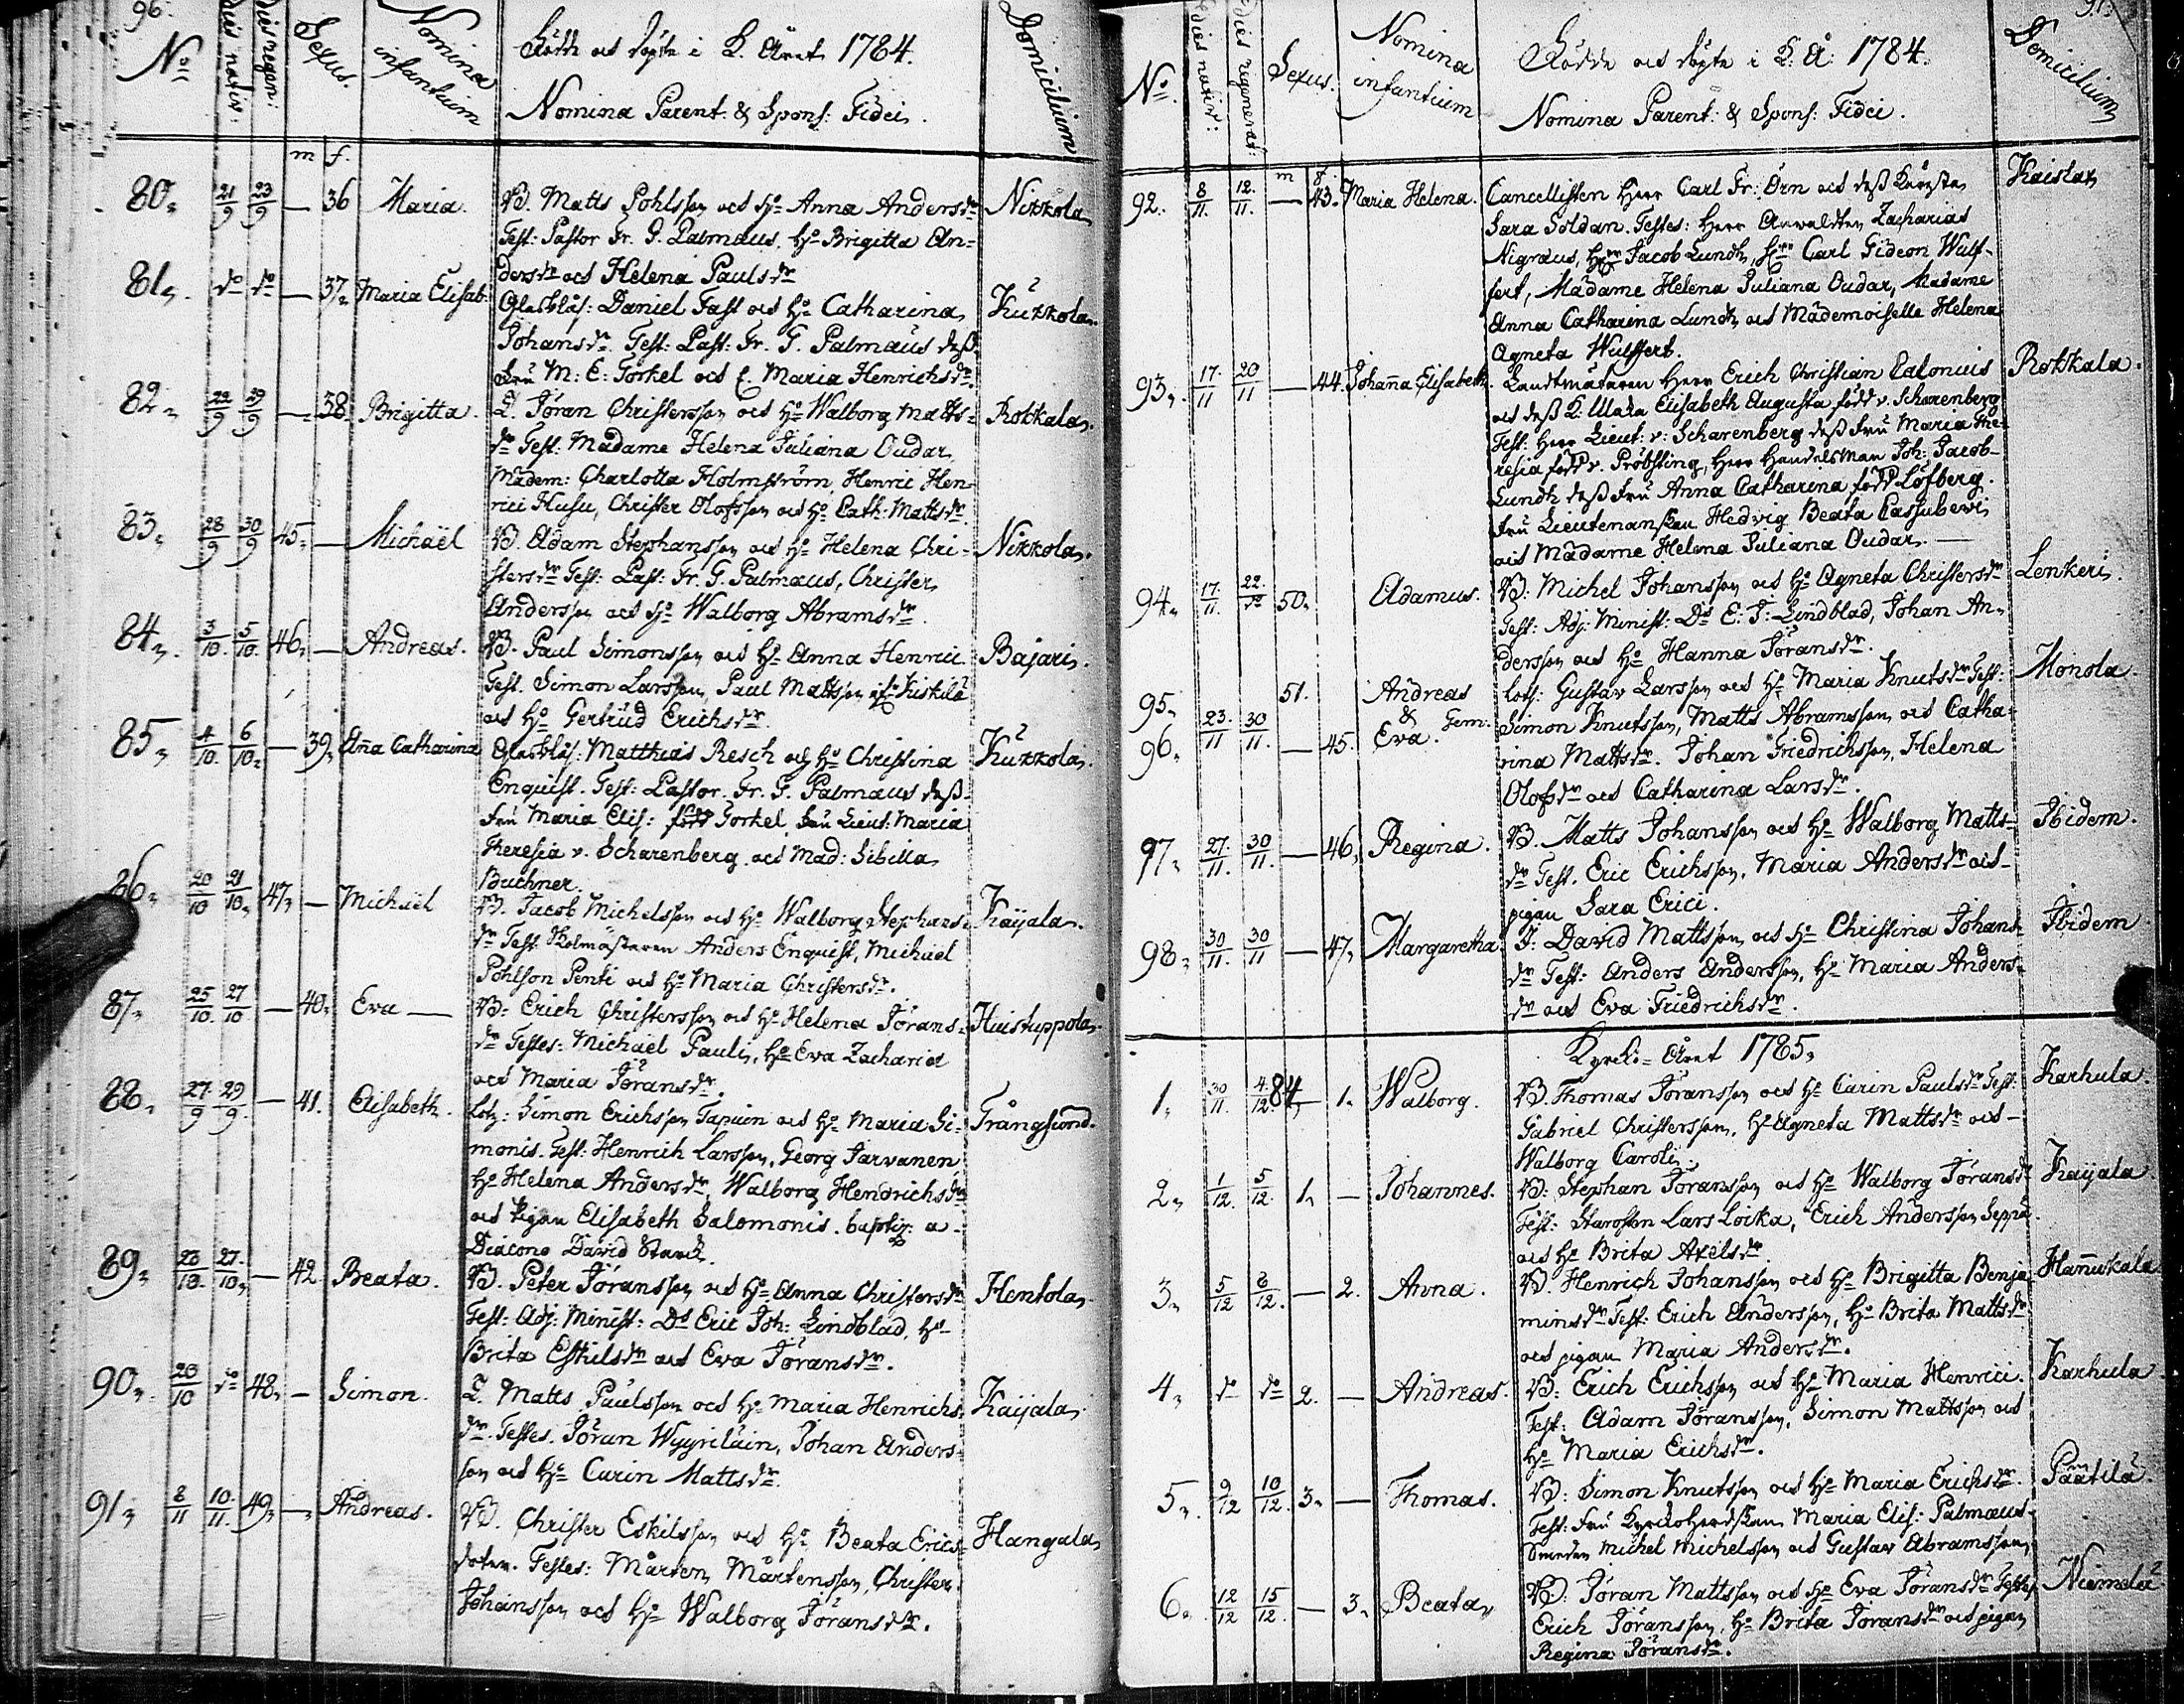 96.
No
dies nativ:
dies regen:
Sexus.
Nomina infantium
Födde och döpte i K. Året 1784.
Nomina Parent: & Spons: Fidei.
Domicilium
m f.
80. 21/9 23/9 — 36 Maria. B. Matts Pohlsson och Ho Anna Andersdr Nikkola
Test: Pastor Fr. G. Palmæus, Ho Brigitta An=
dersdr och Helena Paulsdr
81. do do — 37. Maria Elisab. Glasblås: Daniel Fast och Ho Catharina Kukkola
Johansdr. Test: Past: Fr. G. Palmæus dess
Fru M: E: Forkel och P. Maria Henrichsdr.
82. 22/9 29/9 — 38. Brigitta. T. Jöran Christersson och Ho Walborg Matts= Rokkala
dr Test: Madame Helena Juliana Oudar,
Madem: Charlotta Holmström, Henric Hen
rici Husu, Christer Olofsson och Ho Cath. Mattsdr.
83. 28/9 30/9 45. — Michaël B. Adam Stephansson och Ho Helena Chri= Nikkola
stersdr Test: Past: Fr. G. Palmæus, Christer
Andersson och Ho Walborg Abramsdr.
84. 3/10. 5/10. 46. — Andreas. B. Paul Simonsson och Ho Anna Henrici. Bajari.
Test. Simon Larsson, Paul Mattsson ifr Kiskilä
och Ho Gertrud Erichsdr.
85. 4/10. 6/10. — 39. Ana Catharina Glasblås: Matthias Resch och Ho Christina Kukkola
Enquist. Test: Pastor. Fr. G. Palmæus dess
Fru Maria Elis: född Forkel, Fru Lieut: Maria
Theresia v. Scharenberg och Mad: Sibilla
Buchner.
86. 20/10 21/10. 47. — Michaël B. Jacob Michelsson och Ho Walborg Stephans= Kaijala
dr Test. Skolmästaren Anders Enquist, Michael
Pohlson Penti och Ho Maria Christersdr.
87. 25/10. 27/10 — 40. Eva — B. Erich Christersson och Ho Helena Jörans= Huistuppola
dr Testes: Michael Pauli, Ho Eva Zachariæ
och Maria Jöransdr
88. 27/9 29/9. — 41. Elisabeth. Lots: Simon Erichsson Tapiain och Ho Maria Si= Trångsund.
monis. Test: Henrich Larsson, Georg Jarvanen
Ho Helena Andersdr, Walborg Hendrichsdr
och Pigan Elisabeth Salomonis. baptiz: a
Diacono David Starck.
89. 23/10. 27./10. — 42 Beata. B. Peter Jöransson och Ho Anna Christersdr Hentola
Test: Adj: Minist: Ds Eric Joh: Lindblad, Ho
Brita Eskilsdr och Eva Jöransdr.
90. 20/10 do 48. — Simon. T. Matts Paulsson och Ho Maria Henrichs= Kaijala
dr. Testes. Jöran Wyyriläin, Johan Anders=
son och Ho Carin Mattsdr.
91. 8/11 10./11. 49. — Andreas. B. Christer Eskilsson och Ho Beata Erics= Hangala
doter. Testes: Mårten Mårtensson, Christer
Johansson och Ho Walborg Jöransdr.
97.
No.
dies nativ:
dies regenerat:
Sexus.
Nomina infantium
Födde och döpte i K: Å: 1784.
Nomina Parent: & Spons: Fidei.
Domicilium
m f.
92. 8/11. 12./11. — 43. Maria Helena. Cancellisten Herr Carl Fr: Örn och dess Kärесta Kaislax
Sara Soldan. Testes: Herr Auvaldten Zacharias
Nigræus, Herr Jacob Lundh, Herr Carl Gideon Wulf-
fert, Madame Helena Juliana Oudar, Madame
Anna Catharina Lundh och Mademoiselle Helena
Agneta Wulffert.
93. 17./11 20/11 — 44. Johana Elisabeth. Landtmätaren Herr Erich Christian Calonius Rokkala.
och dess K. Maka Elisabeth Augusta född v. Scharenberg
Test: Herr Lieut: v: Scharenberg dess Fru Maria The-
resia född v. Pröbsting, Herr Handelsman Joh: Jacob
Lundh dess Fru Anna Catharina född Löfberg.
Fru Lieutenanskan Hedvig Beata Cassubevi,
och Madame Helena Juliana Oudar. —
94. 17./11. 22./do 50. Adamus. B: Michel Johansson och Ho Agneta Christersdr Lenkeri.
Test: Adj: Minist: Ds E: J: Lindblad, Johan An=
dersson och Ho Hanna Jöransdr.
95. 51. Andreas Lots: Gustav Larsson och Ho Maria Knutsdr Test: Monola.
23./11 30/11. & Gem. Simon Knutsson, Matts Abramsson och Catha=
96. — 45. Eva. rina Mattsdr. Johan Friedrichsson, Helena
Olofsdr och Catharina Larsdr.
97. 27./11. 30/11. — 46. Regina. B. Matts Johansson och Ho Walborg Matts= Ibidem.
dr Test. Eric Erichsson, Maria Andersdr och
pigan Sara Erici.
98. 30/11. 30/11 — 47. Margaretha. I: David Mattsson och Ho Christina Johans= Ibidem
dr Test: Anders Andersson, Ho Maria Anders=
dr och Eva Friedrichsdr.
Kyrko=Året 1785.
1. 30/11. 4./12. 84 — 1. Walborg. B. Thomas Jöransson och Ho Carin Paulsdr Test: Karhula.
Gabriel Christersson, Ho Agneta Mattsdr och
Walborg Caroli.
2. 1/12. 5/12. 1. — Johannes. B: Stephan Jöransson och Ho Walborg Jöransdr Kaijala
Test: Starosten Lars Loika, Erich Andersson Seppä.
och Ho Brita Axelsdr
3. 5/12 6/12. — 2. Anna. B. Henrich Johansson och Ho Brigitta Benja= Hanukala
minsdr Test: Erich Andersson, Ho Brita Mattsdr
och pigan Maria Andersdr.
4. do do 2. — Andreas. B: Erich Erichsson och Ho Maria Henrici. Karhula
Test: Adam Jöransson, Simon Mattsson och
Ho Maria Erichsdr.
5. 9/12 10/12. 3. — Thomas. B: Simon Knutsson och Ho Maria Erichsdr. Päätilä
Test: Fru Kyrkoherdskan Maria Elis: Palmæus
Smeden Michel Michelsson och Gustav Abramsson,
6. 12/12 15/12. — 3. Beata B: Jöran Mattsson och Ho Eva Jöransdr Testes Niemelä
Erich Jöransson, Ho Brita Jöransdr och pigan
Regina Jöransdr.